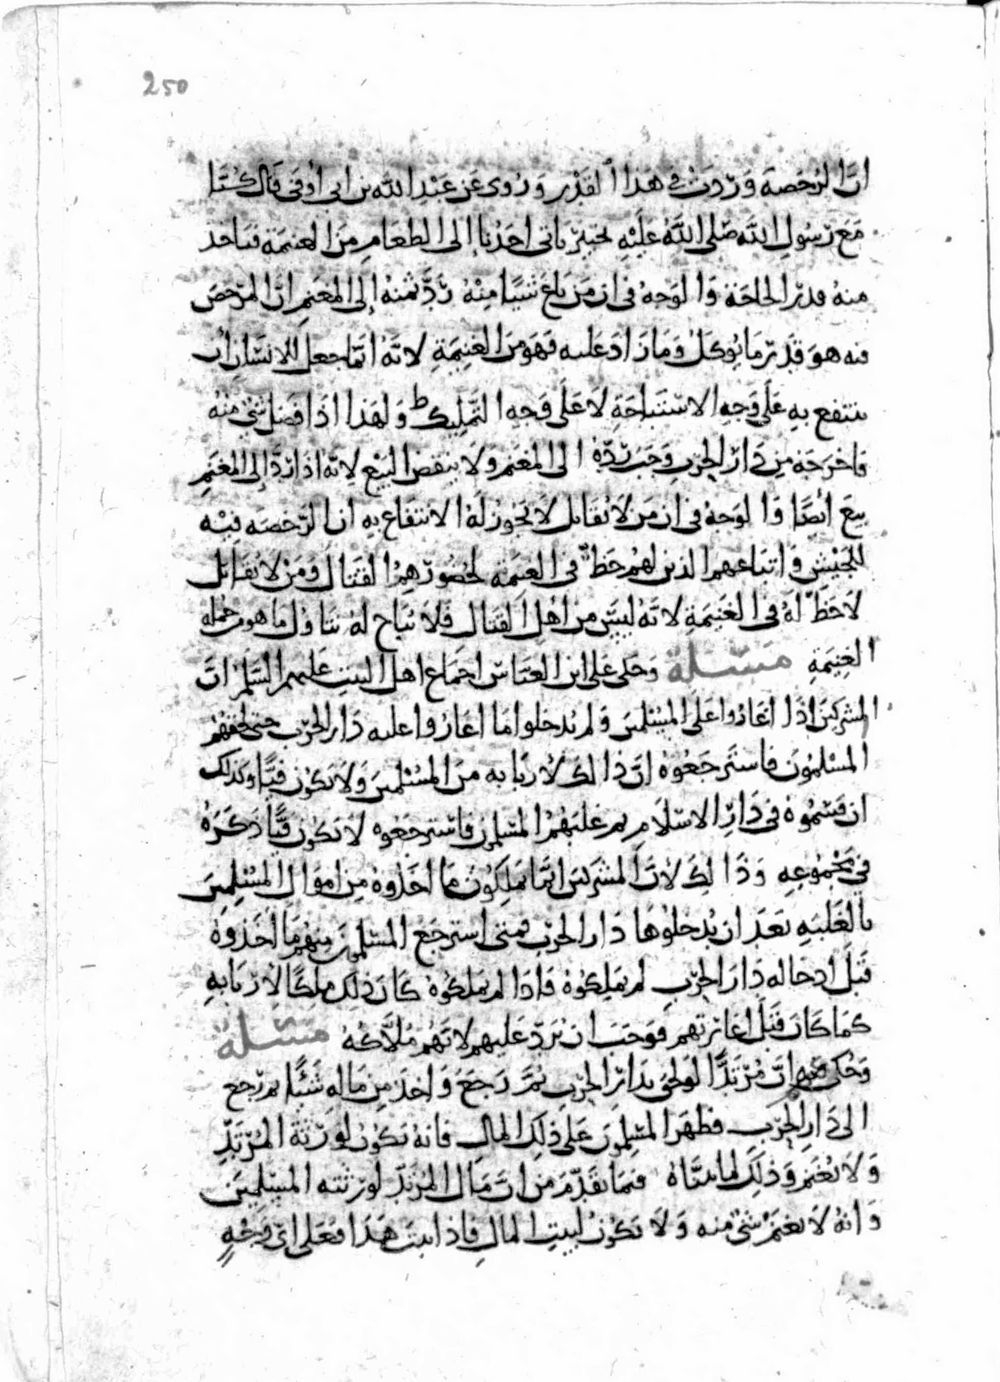 250
ان الرخصة وردت في هذا القدر وروى عن عبد الله بن ابي اوفى قال كنا
مع رسول الله صلى الله عليه بخيبر ياتي احدنا الى الطعام من الغنيمة فياخذ
منه قدر الحاجة والوجه في ان من باع شيئا منه رد ثمنه الى المغنم ان المرخص
فيه هو قدر ما يوكل وما زاد عليه فهو من الغنيمة لانه انما جعل للانسان ان
ينتفع به على وجه الاستباحة لا على وجه التمليك ولهذا اذا فضل شي منه
فاخرجه من دار الحرب وجب رده الى المغنم ولا ينقض البيع لانه اذا رد الى المغنم
بيع ايضا والوجه في ان من لا يقاتل لا يجوز له الانتفاع به ان الرخصة فيه
للجيش واتباعهم الذين لهم حظ في الغنيمة لحضورهم القتال ومن لا يقاتل
لا حظ له في الغنيمة لانه ليس من اهل القتال فلا يباح له تناول ما هو من جملة
الغنيمة مسئلة وحكى على ابن العباس اجماع اهل البيت عليهم السلم ان
المشركين اذا اغاروا على المسلمين ولم يدخلوا ما اغاروا عليه دار الحرب حتى لحقهم
المسلمون فاسترجعوه ان ذلك لاربابه من المسلمين ولا يكون فيا وكذلك
ان قسموه في دار الاسلام ثم غلبهم المسلمون فاسترجعوه لا يكون فيا ذكره
في مجموعه وذلك لان المشركين انما يملكون ما اخذوه من اموال المسلمين
بالغلبه بعد ان يدخلوها دار الحرب فمتى استرجع المسلمون منهم ما اخذوه
قبل ادخاله دار الحرب لم يملكوه فاذا لم يملكوه كان ذلك ملكا لاربابه
كما كان قبل اغارتهم فوجب ان يرد عليهم لانهم ملاكه مسئلة
وحكى فيه ان مرتدا لو لحق بدار الحرب ثم رجع واخذ من ماله شيئا ثم رجع
الى دار الحرب فظهر المسلمون على ذلك المال فانه يكون لورثة المرتد
ولا يغنم وذلك لما بيناه فيما تقدم من ان مال المرتد لورثته المسلمين
وانه لا يغنم شي منه ولا يكون لبيت المال فاذا ثبت هذا فعلى اي وجه